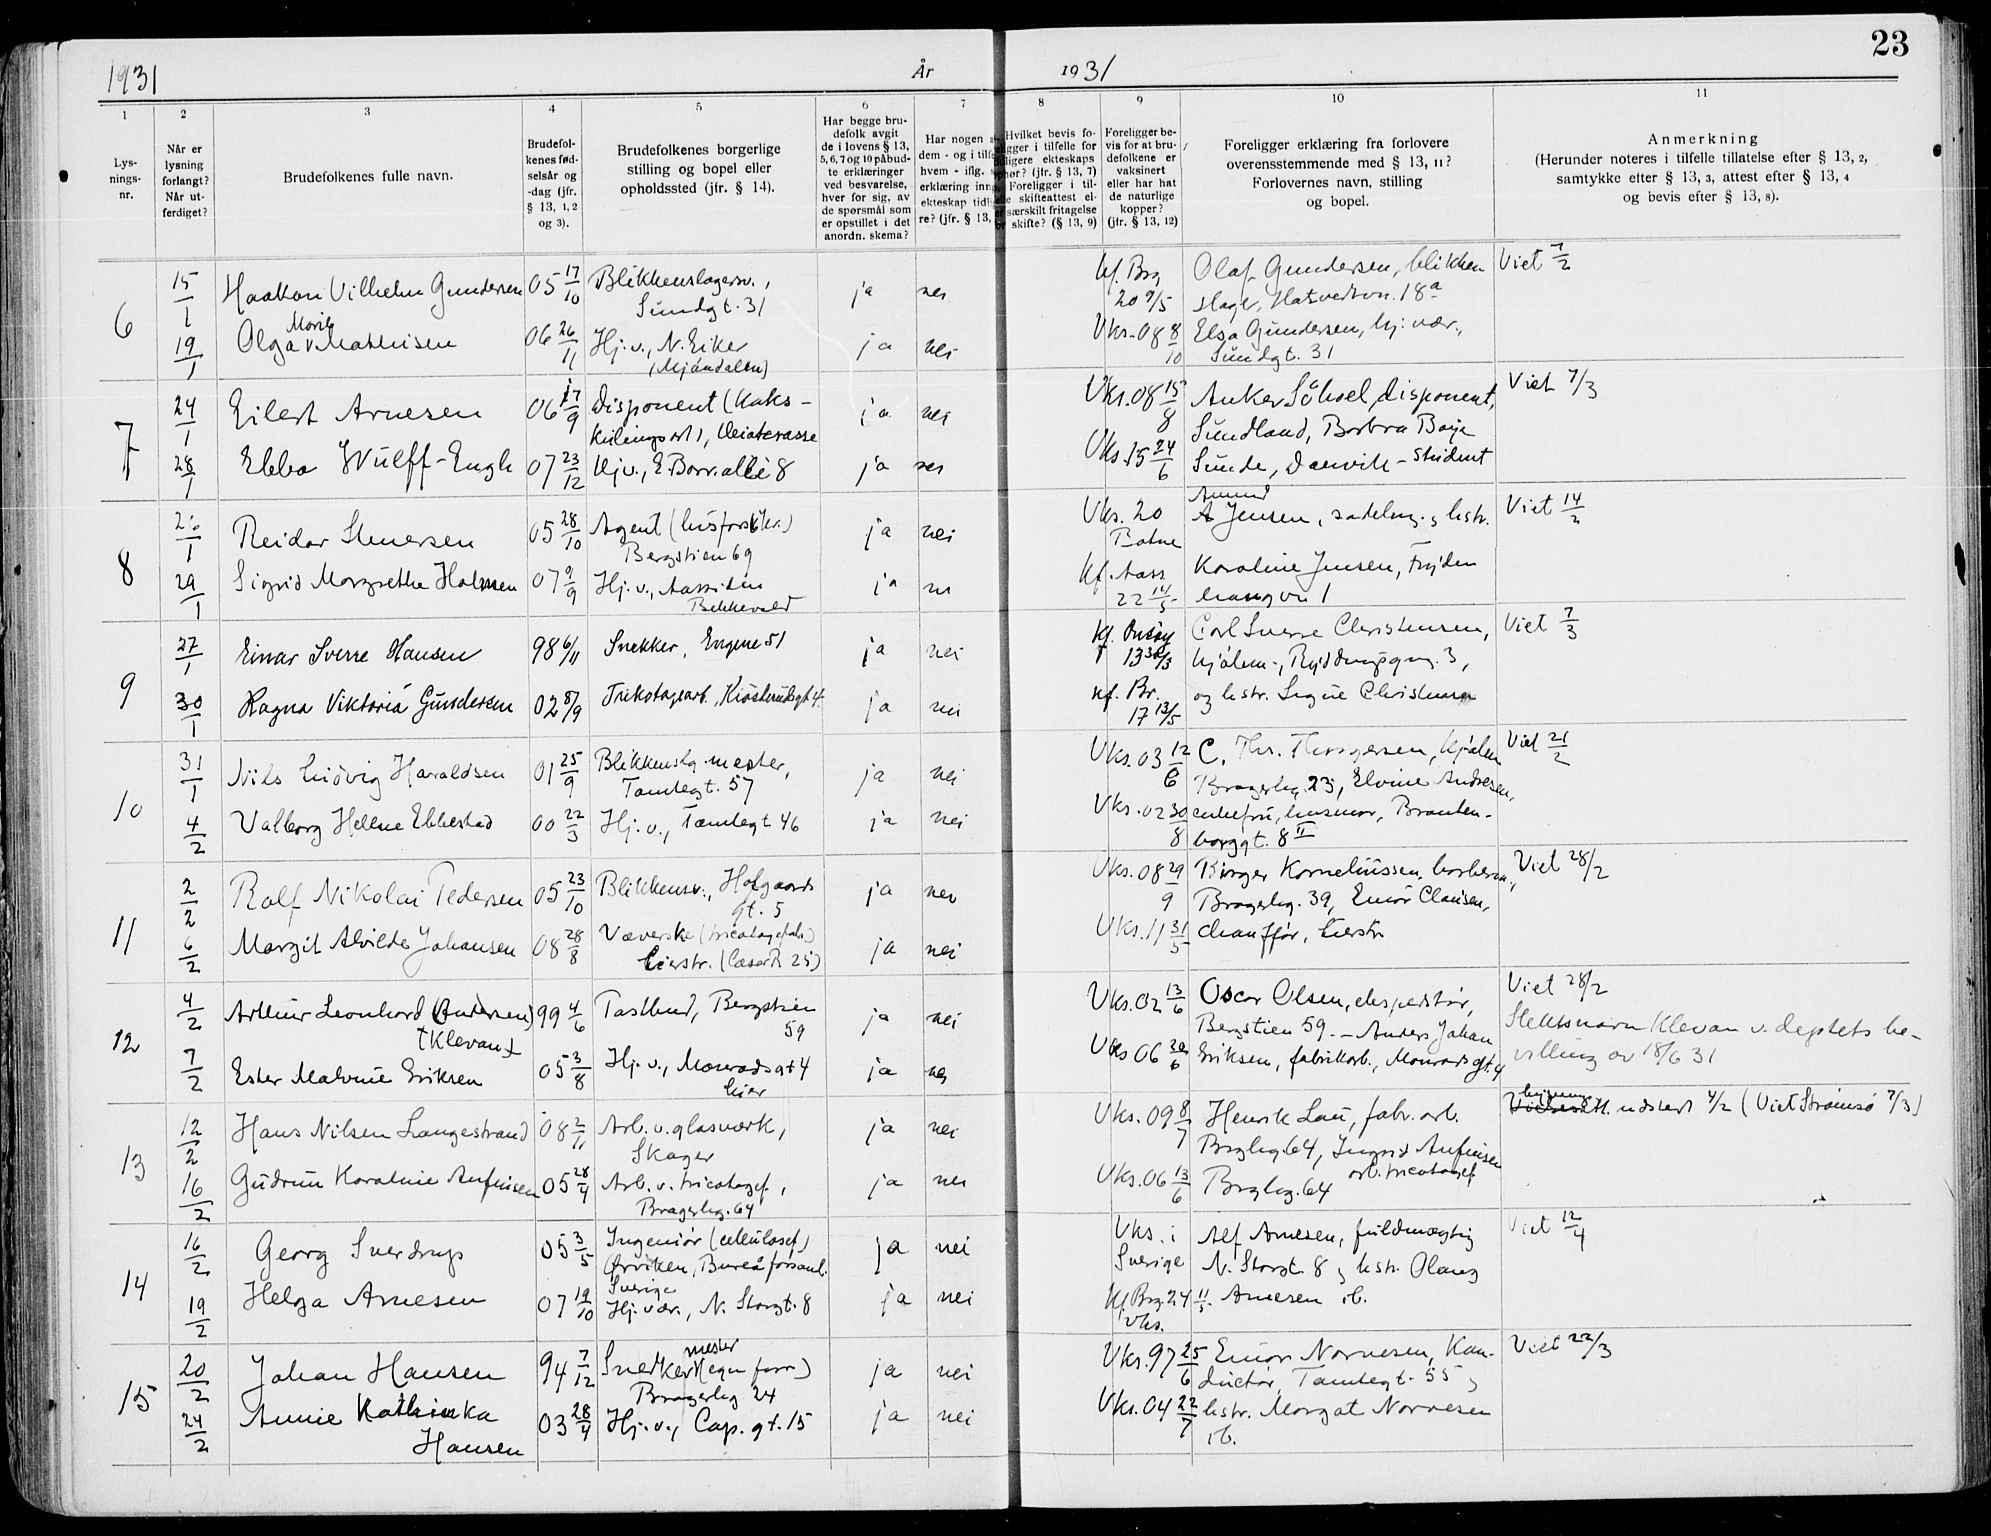 1931
År
1931
23
1
2
3
4
5
6
7
8
9
10
11
Lys-
nings-
nr.
Når er
lysning
forlangt?
Når ut-
ferdiget?
Brudefolkenes fulle navn.
Brudefol-
kenes fød-
selsår og
-dag (jfr.
§ 13, 1, 2
og 3).
Brudefolkenes borgerlige
stilling og bopel eller
opholdssted (jfr. § 14).
Har begge bru-
defolk avgit
de i lovens § 13,
5, 6, 7 og 10 påbud-
te erklæringer
ved besvarelse,
hver for sig, av
de spørsmål som
er opstillet i det
anordn. skema?
Har nogen
dem - og i tilf
hvem - iflg.
erklæring inng
ekteskap tidl
re? (jfr. § 13,
Hvilket bevis fo-
ligger i tilfelle for
ekteskaps
(jfr. § 13, 7)
Foreligger i til-
skifteattest el-
særskilt fritagelse
skifte? (§ 13, 9)
Foreligger be-
vis for at bru-
defolkene er
vaksinert
eller har hat
de naturlige
kopper?
(jfr. § 13, 12)
Foreligger erklæring fra forlovere
overensstemmende med § 13, 11?
Forlovernes navn, stilling
og bopel.
Anmerkning
(Herunder noteres i tilfelle tillatelse efter § 13, 2,
samtykke efter § 13, 3, attest efter § 13, 4
og bevis efter § 13, 8).
6
15/1 Haakon Vilhelm Gundersen 05 17/10 Blikkenslagersv., ja nei kf. Brg Olaf Gundersen, blikken Viet 7/2
Sundgt. 31 20 9/5 18a
Marie
19/1 Olga Mathisen 06 26/11 Hj. v., N. Eiker ja nei Vks. 08 8/10 Elsa Gundersen, hj. vær.,
(Mjøndalen) Sundgt. 31
7
24/1 Eilert Arnesen 06 17/9 Disponent ja nei Vks. 08 15/8 Anker disponent, Viet 7/3
Sundland,
28/1 Ebba Wulff-Engh 07 23/12 Hj v., E. Borr. allé 8 ja nei Vks. 15 24/6 Sunde, Danvik - student
8
26/1 Reidar 05 28/10 Agent ja nei Vks. 20 Jensen, Viet 14/2
Bergstien 69
29/1 Sigrid Margrethe 07 9/9 Hj. v., Aassiden ja nei kf. Aass Karoline Jensen,
22 14/5
9
27/1 Einar Sverre Hansen 98 6/11 Snekker, Engene 51 ja nei kf. Carl Sverre Christensen, Viet 7/3
13 3,
30/1 Ragna Viktoria Gundersen 02 8/9 Trikotagearb., ja nei kf. Br. og hstr. Signe Christensen
17 13/5
10
31/1 Nils Ludvig Haraldsen 01 25/9 Blikkenslg. mester, ja nei Vks. 03 12/6 C. Thr. Viet 21/2
Tomtegt. 57 Bragerhg. 23, Elvine Andresen,
4/2 Valborg Helene Ebbestad 00 22/3 Hj. v., Tomtegt. 46 ja nei Vks. 02 30/8 enkefru, husmor, Branten-
borggt. 8 II
11
2/2 Rolf Nikolai Pedersen 05 23/10 Blikkensv., Hofgaards ja nei Vks. 08 29/9 Birger Korneliussen, Viet 28/2
gt. 5 Bragerhg. 39, Einar Clausen,
6/2 Margit Alvilde Johansen 08 28/8 Væverske ja nei Vks. 11 31/5 chauffør, Lierstr.
Lierstr.
12
4/2 Arthur Leonhard (Andersen) 99 4/6 Postbud, Bergstien ja nei Vks. 02 13/6 Oscar Olsen, ekspeditør, Viet 28/2
(Klevan) 59 Bergstien 59. - Anders Johan Slektsnavn Klevan v. deptets be-
7/2 Ester Malvine Eriksen 05 3/8 Hj. v., Monradsgt 4 ja nei Vks 06 Eriksen, fabrikarb., Monradsgt. 4 villing av 18/6 31
Lier
13
12/2 Hans Nilsen Langestrand 08 2/11 Arb. v. glasverk, ja nei Vks. 09 8/7 Henrik Lau, fabr. arb. utstedt 4/2 (Viet Strømsø 7/3)
Skoger Brghg 64, Ingrid Anfinsen
16/2 Gudrun Karoline Anfinsen 05 28/4 Arb. v. tricotagef., ja nei Vks. 06 13/6 Brghg. 64 arb. tricotagef.
Bragerhg. 64
14
16/2 Georg Sverdrup 05 3/5 Ingeniør (cellulosef.) ja nei Vks. i Alf Arnesen, fuldmægtig Viet 12/4
Ørviken, Bureå församl. Sverige N. Storgt. 8 og hstr.
Sverige
19/2 Helga Arnesen 07 19/10 Hj. vær., N. Storgt. 8 ja nei kf Brg. 24 11/5 Arnesen ib.
Vks.
15
mester
20/2 Johan Hansen 94 7/12 Snekker (egen forr.) ja nei Vks. 97 25/6 Einar Norvesen, Kon- Viet 22/3
Bragerhg 24 duktør, Tomtegt. 55,
24/2 Annie Kathinka 03 28/4 Hj. v., Cap. gt. 15 ja nei Vks. 04 22/7 hstr. Margat Norvesen
Hansen ib.